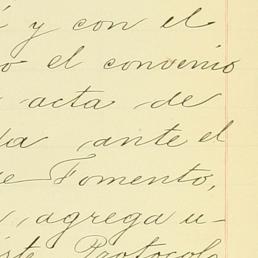 y con el
o el convenio
acta de
da ante el
e Fomento,
, agrega u-
Protocolo